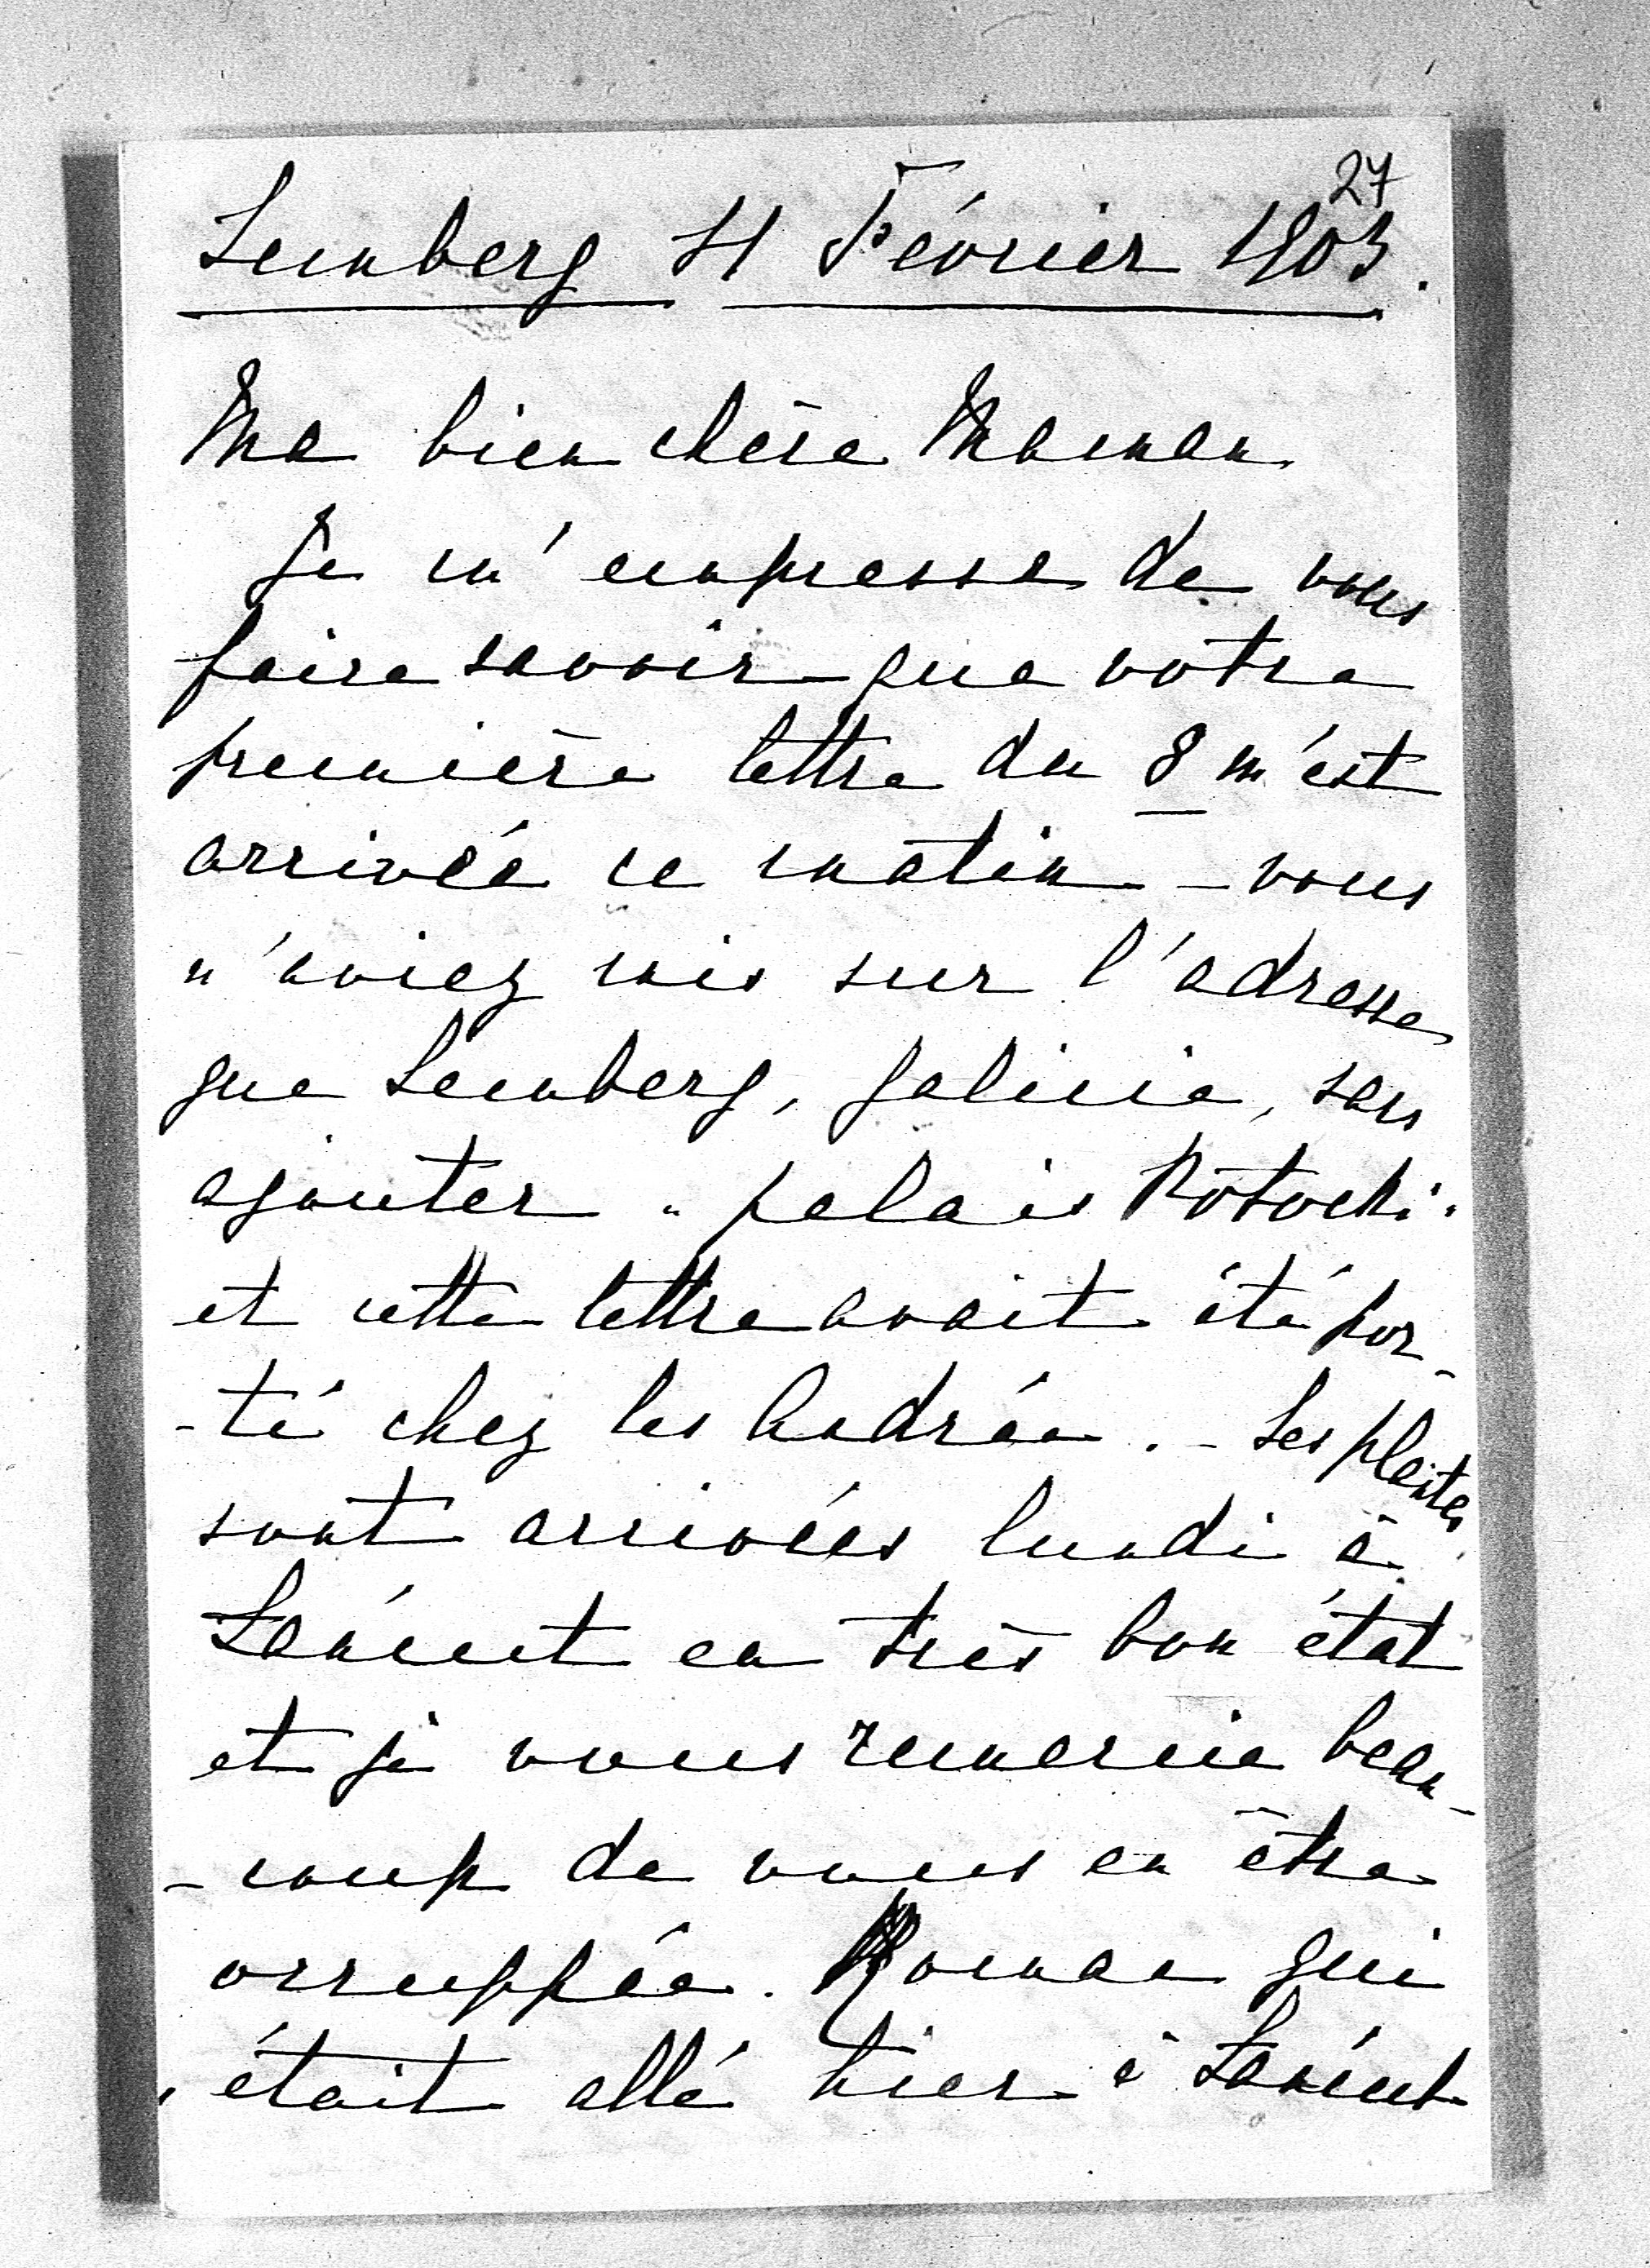 27
Lemberg 11 Février 1903.
Ma bien chère Maman
Je m'empresse de vous
faire savoir que votre
première lettre du 8 m'est
arrivée ce matin - vous
n'aviez mis sur l'adresse
que Lemberg, Galicie, sans
ajouter "palais Potocki"
et cette lettre avait été por-
-té chez les André. - Les plantes
sont arrivées lundi à
Łańcut en très bon état
et je vous remercie beau-
-coup de vous en être
occuppée. Roman qui
était allé hier à Łańcut